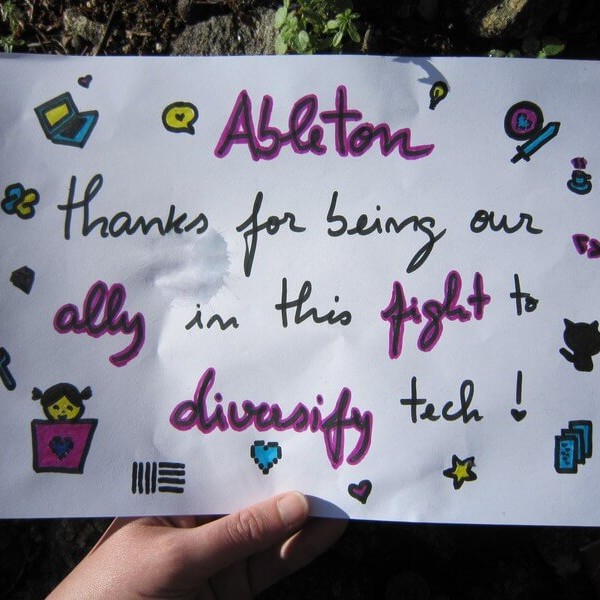 Ableton
thanks for being our
ally in this fight to
diversify tech!